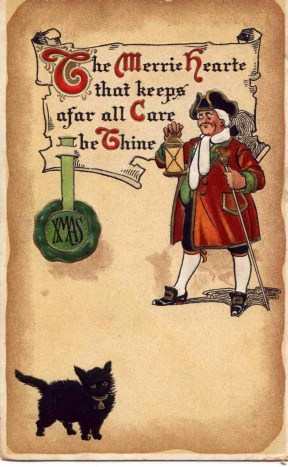 The Merrie Hearte
that keeps
afar all Care
be Thine
XMAS